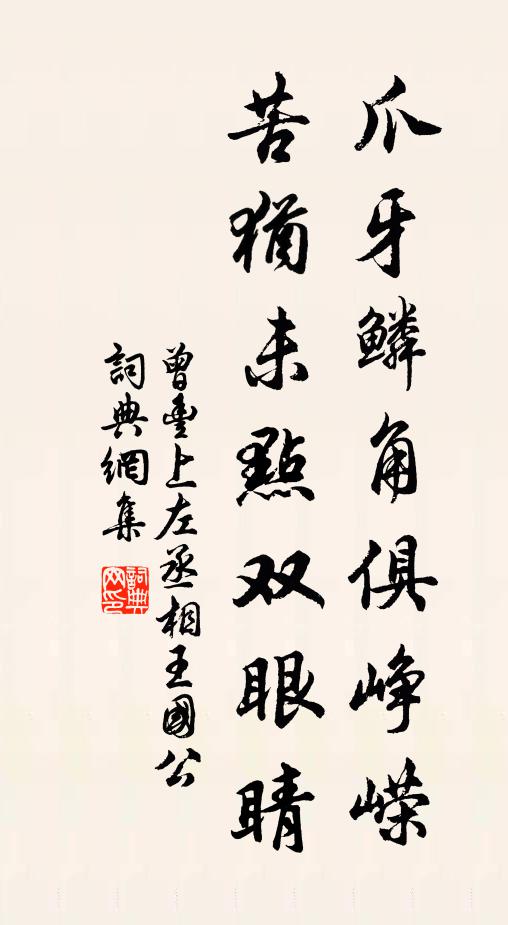 爪牙鳞角俱峥嵘
苦犹未點双眼睛
曾豊上左丞相王國公
詞典網集
詞典
网印